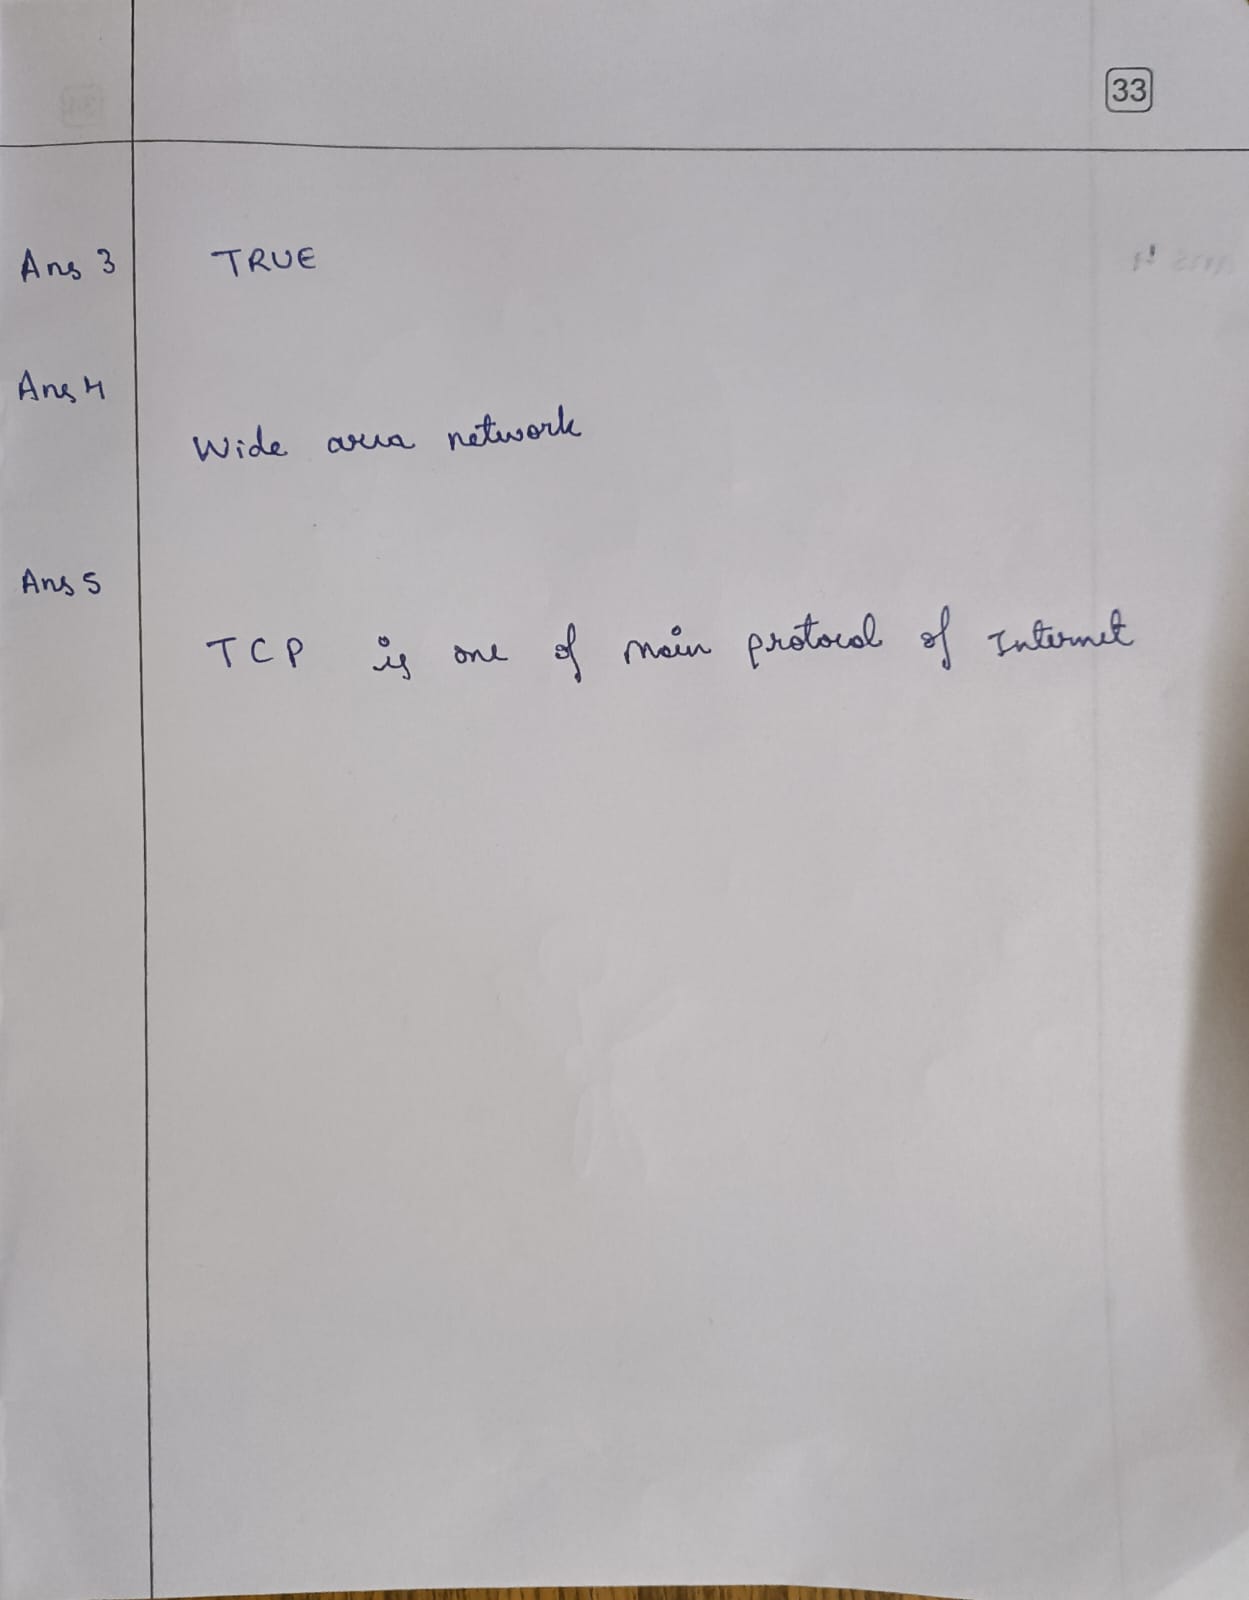 33
Ans 3 TRUE
Ans 4
Wide area network
Ans 5
TCP is one of main protocol of Internet